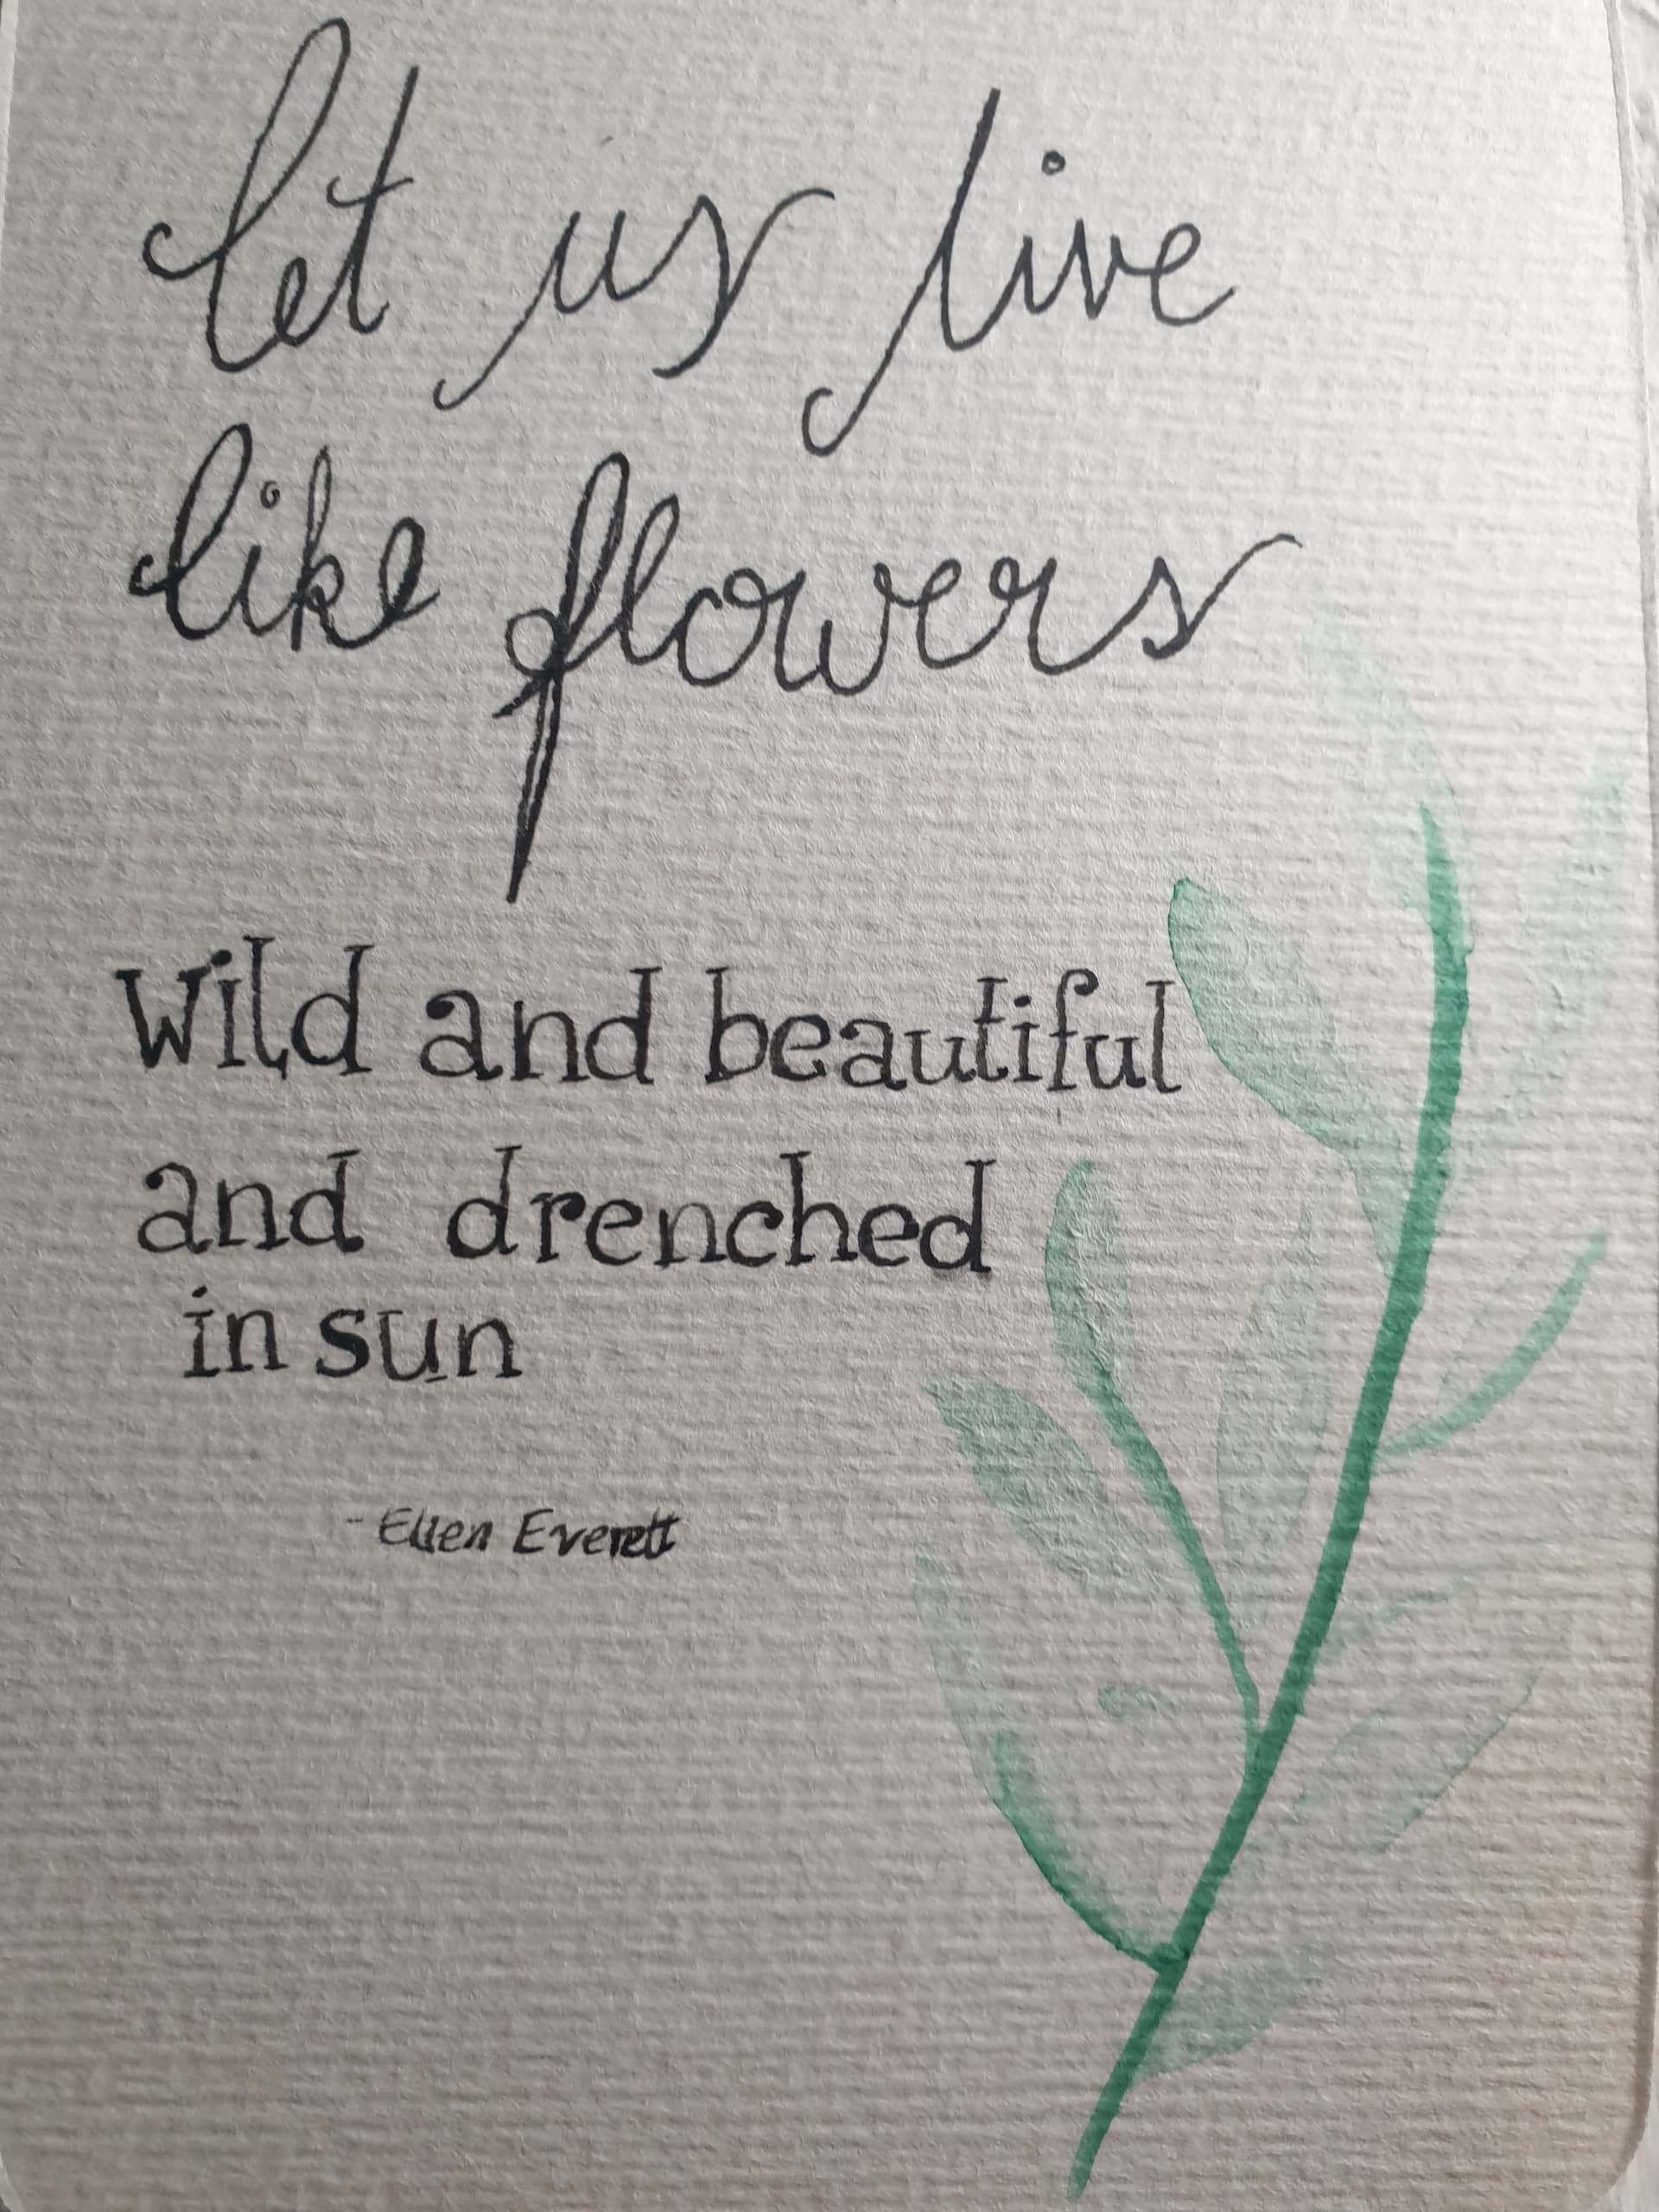 let us live
like flowers
Wild and beautiful
and drenched
in sun
- Ellen Everett